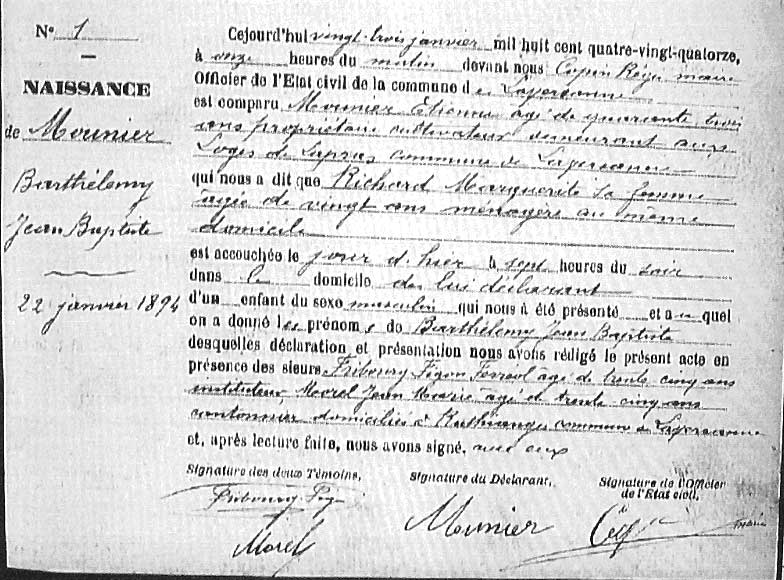 N° 1
NAISSANCE
de Mounier
Barthélemy
Jean Baptiste
22 janvier 1894
Cejourd'hui vingt-trois janvier mil huit cent quatre-vingt-quatorze,
à onze heures du matin devant nous maire
Officier de l'Etat civil de la commune de
est comparu Mounier Etienne âgé de quarante trois
ans propriétaire cultivateur demeurant aux
Loges de commune de
qui nous a dit que Richard Marguerite sa femme
âgée de vingt ans ménagère au même
domicile
est accouchée le jour d'hier à sept heures du soir
dans le domicile de lui déclarant
d'un enfant du sexe masculin qui nous à été présenté et au quel
on a donné les prénoms de Barthélemy Jean Baptiste
desquelles déclaration et présentation nous avons rédigé le présent acte en
présence des sieurs Fribourg âgé de trente cinq ans
instituteur Morel Jean Marie âgé de trente cinq ans
cantonnier domiciliés à commune de
et, après lecture faite, nous avons signé, avec eux
Signature des deux Témoins,
Signature du Déclarant,
Signature de l'Officier
de l'Etat civil,
Fribourg
Morel
Mounier
maire